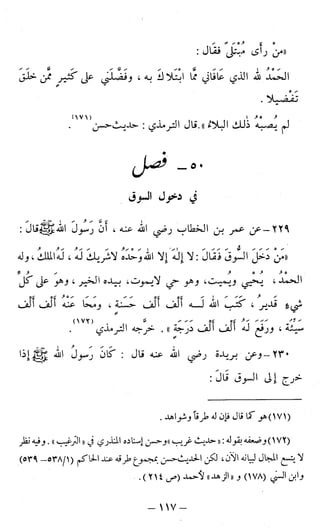 «مَنْ رأى مُبْتَلىً فقال :
الحَمْدُ لله الذي عَافَاني مِمَّا ابْتَلاَكَ به ، وفَضَّلَني على كَثيرٍ مِمَّنْ خلَقَ
تَفْضِيلا .
لم يُصِبْهُ ذلك البلاءُ» . قال الترمذي : حديث حسن(١٧١) .
٥٠ - فصل
في دخول السوق
٢٢٩ - عن عمر بن الخطاب رضي الله عنه ، أنَّ رَسُولَ الله ﷺ قالَ :
«مَنْ دَخَلَ السُّوقَ فَقَالَ : لا إلهَ إلا الله وَحْدَهُ لاشَريكَ لَهُ ، لَهُ المُلكُ ، وله
الحَمْدُ ، يُحْيي ويُمِيت ، وهو حي لايموت ، بيده الخير ، وهوَ على كُلِّ
شيءٍ قَديرٌ ، كَتَبَ الله لــه ألفَ ألفَ حَسَنَةٍ ، ومَحَا عَنْهُ ألفَ ألف
سَيِّئَة ، ورَفَعَ لَهُ ألفَ ألفَ دَرَجَةٍ» . خرَّجه الترمذي(١٧٢) .
٢٣٠ - وعن بريدة رضي الله عنه قال : كَانَ رَسولُ الله ﷺ إذا
خرج إلى السوق قالَ :
(١٧١) هو كما قال فإن له طرقاً وشواهد .
(١٧٢) وضعفه بقوله : «حديث غريب» وحسن إسناده المنذري في «الترغيب» . وفيه نظر
لا يتسع المجال لبيانه الآن ، لكن الحديث حسن بمجموع طرقه عند الحاكم (٥٣٨/١ - ٥٣٩)
وابن السني (١٧٨) و «الزهد» لأحمد (ص ٢١٤) .
- ١١٧ -